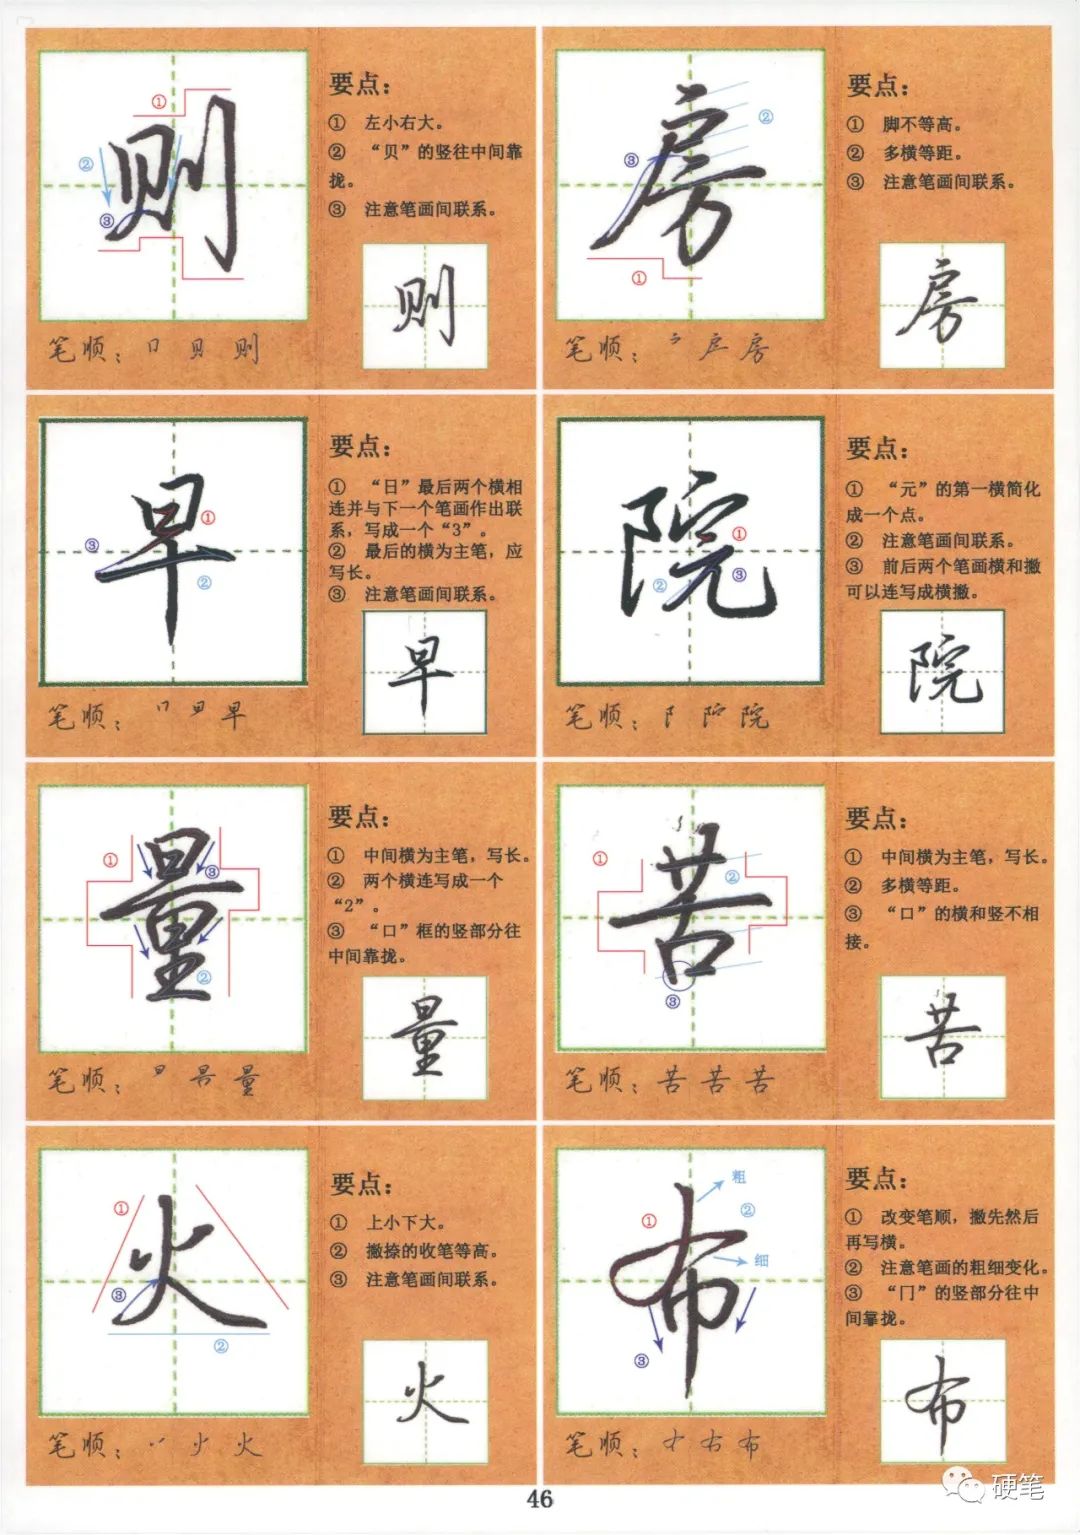 则
①
②
③
要点：
① 左小右大。
② “贝”的竖往中间靠
拢。
③ 注意笔画间联系。
则
笔顺：冂 贝 则
房
②
③
①
要点：
① 脚不等高。
② 多横等距。
③ 注意笔画间联系。
房
笔顺：户 房
早
①
③
②
要点：
① “日”最后两个横相
连并与下一个笔画作出联
系，写成一个“3”。
② 最后的横为主笔，应
写长。
③ 注意笔画间联系。
早
笔顺：冂 日 早
院
①
②
③
要点：
① “元”的第一横简化
成一个点。
② 注意笔画间联系。
③ 前后两个笔画横和撇
可以连写成横撇。
院
笔顺：阝 院
量
①
③
②
要点：
① 中间横为主笔，写长。
② 两个横连写成一个
“2”。
③ “口”框的竖部分往
中间靠拢。
量
笔顺：日 量
苦
①
②
③
要点：
① 中间横为主笔，写长。
② 多横等距。
③ “口”的横和竖不相
接。
苦
笔顺：苦 苦 苦
火
①
③
②
要点：
① 上小下大。
② 撇捺的收笔等高。
③ 注意笔画间联系。
火
笔顺：丷 火 火
布
粗
①
②
细
③
要点：
① 改变笔顺，撇先然后
再写横。
② 注意笔画的粗细变化。
③ “冂”的竖部分往中
间靠拢。
布
笔顺：ナ 右 布
46
硬笔